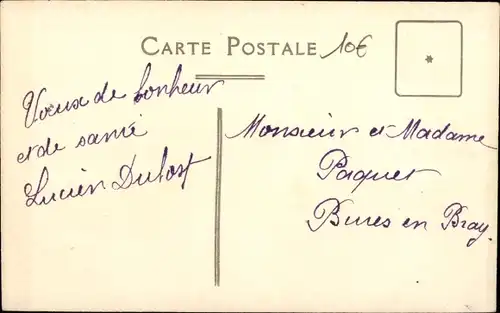 CARTE POSTALE
10€
Vœux de bonheur
et de santé
Lucien Dubost
Monsieur et Madame
Paquet
Bures en Bray.